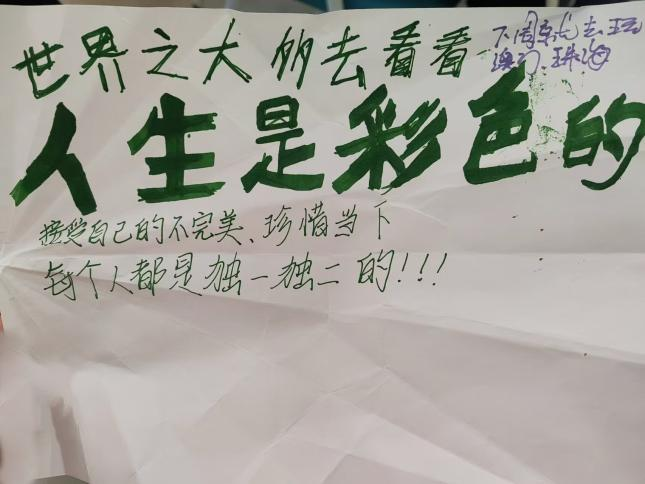 世界之大 多去看看
下周就去玩
澳门、珠海
人生是彩色的
接受自己的不完美、珍惜当下
每个人都是独一独二的!!!